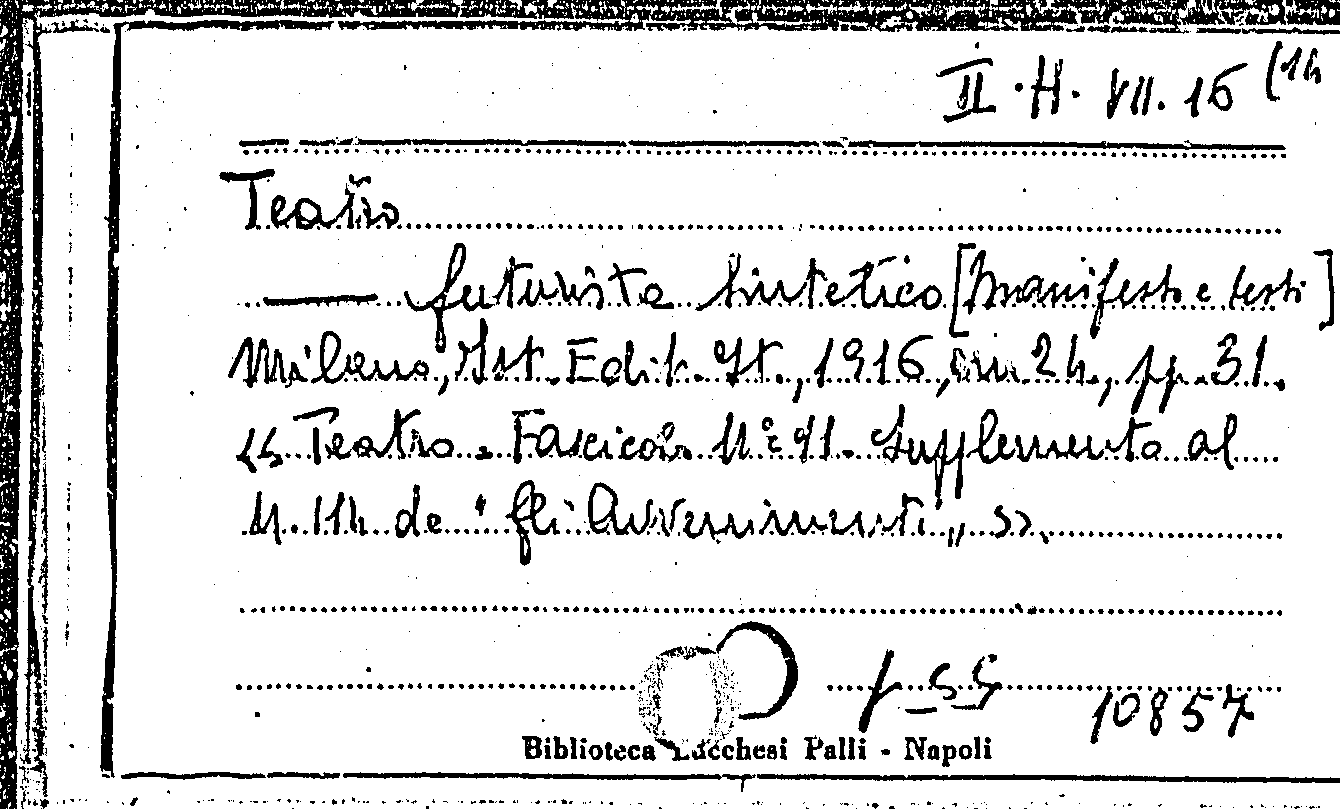 II. H. VII. 16 (14
Teatro
— futurista sintetico [Manifesto e testi]
Milano, Ist. Edit. It., 1916, in 24, pp. 31.
<< Teatro. Fascicolo N.º 91. Supplemento al
N. 114 de "Gli Avvenimenti" >>.
f-55
10857
Biblioteca Lucchesi Palli - Napoli